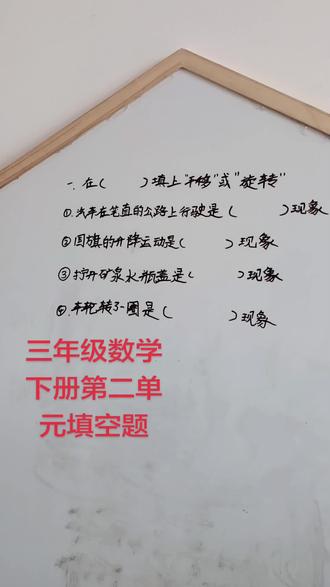 一、在（ ）填上"平移"或"旋转"
①汽车在笔直的公路上行驶是（ ）现象
②国旗的升降运动是（ ）现象
③拧开矿泉水瓶盖是（ ）现象
④车轮转了一圈是（ ）现象
三年级数学
下册第二单
元填空题